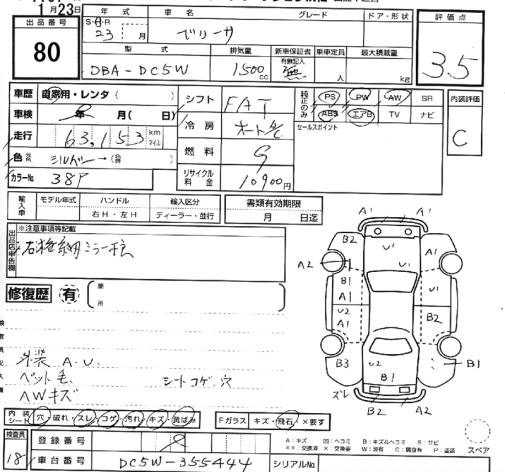 月23日
出品番号 80
年式 S・H・R 23 月
車名 ベリーサ
グレード
ドア・形状
型式 DBA-DC5W
排気量 1500 cc
新車保証書 有無記入 無
乗車定員 人
最大積載量 kg
評価点 3.5
車歴 自家用・レンタ( )
車検 年 月( 日)
走行 63,153 km マイル
色 シルバー
カラーNo 38P
シフト FAT
冷房 オートA/C
燃料 G
リサイクル料金 10900円
純正のみ PS PW AW SR
ABS エアB TV ナビ
セールスポイント
内装評価 C
輸入車 モデル年式 ハンドル 輸入区分
年 右H・左H ディーラー・並行
書類有効期限
月 日迄
出品店申告欄 ※注意事項等記載
右格納ミラー
修復歴 有 箇所
外装 A.U.
ペット毛 シートコゲ穴
AWキズ
内装シート 穴 破れ・スレ・コゲ・汚れ・キズ・黄ばみ
Fガラス キズ・飛石・×要す
検査員 18
登録番号
車台番号 DC5W-355444
シリアルNo
A1 A1
B2 U1 B2
A2 U1
B1
A1
U2 B2
A1
U2
B3 B1
スレ U1
B2 A2
A：キズ 凹：ヘコミ B：キズ&ヘコミ S：サビ
××：交換済 ×：交換要 W：波有 C：腐食有 P：塗装
スペア